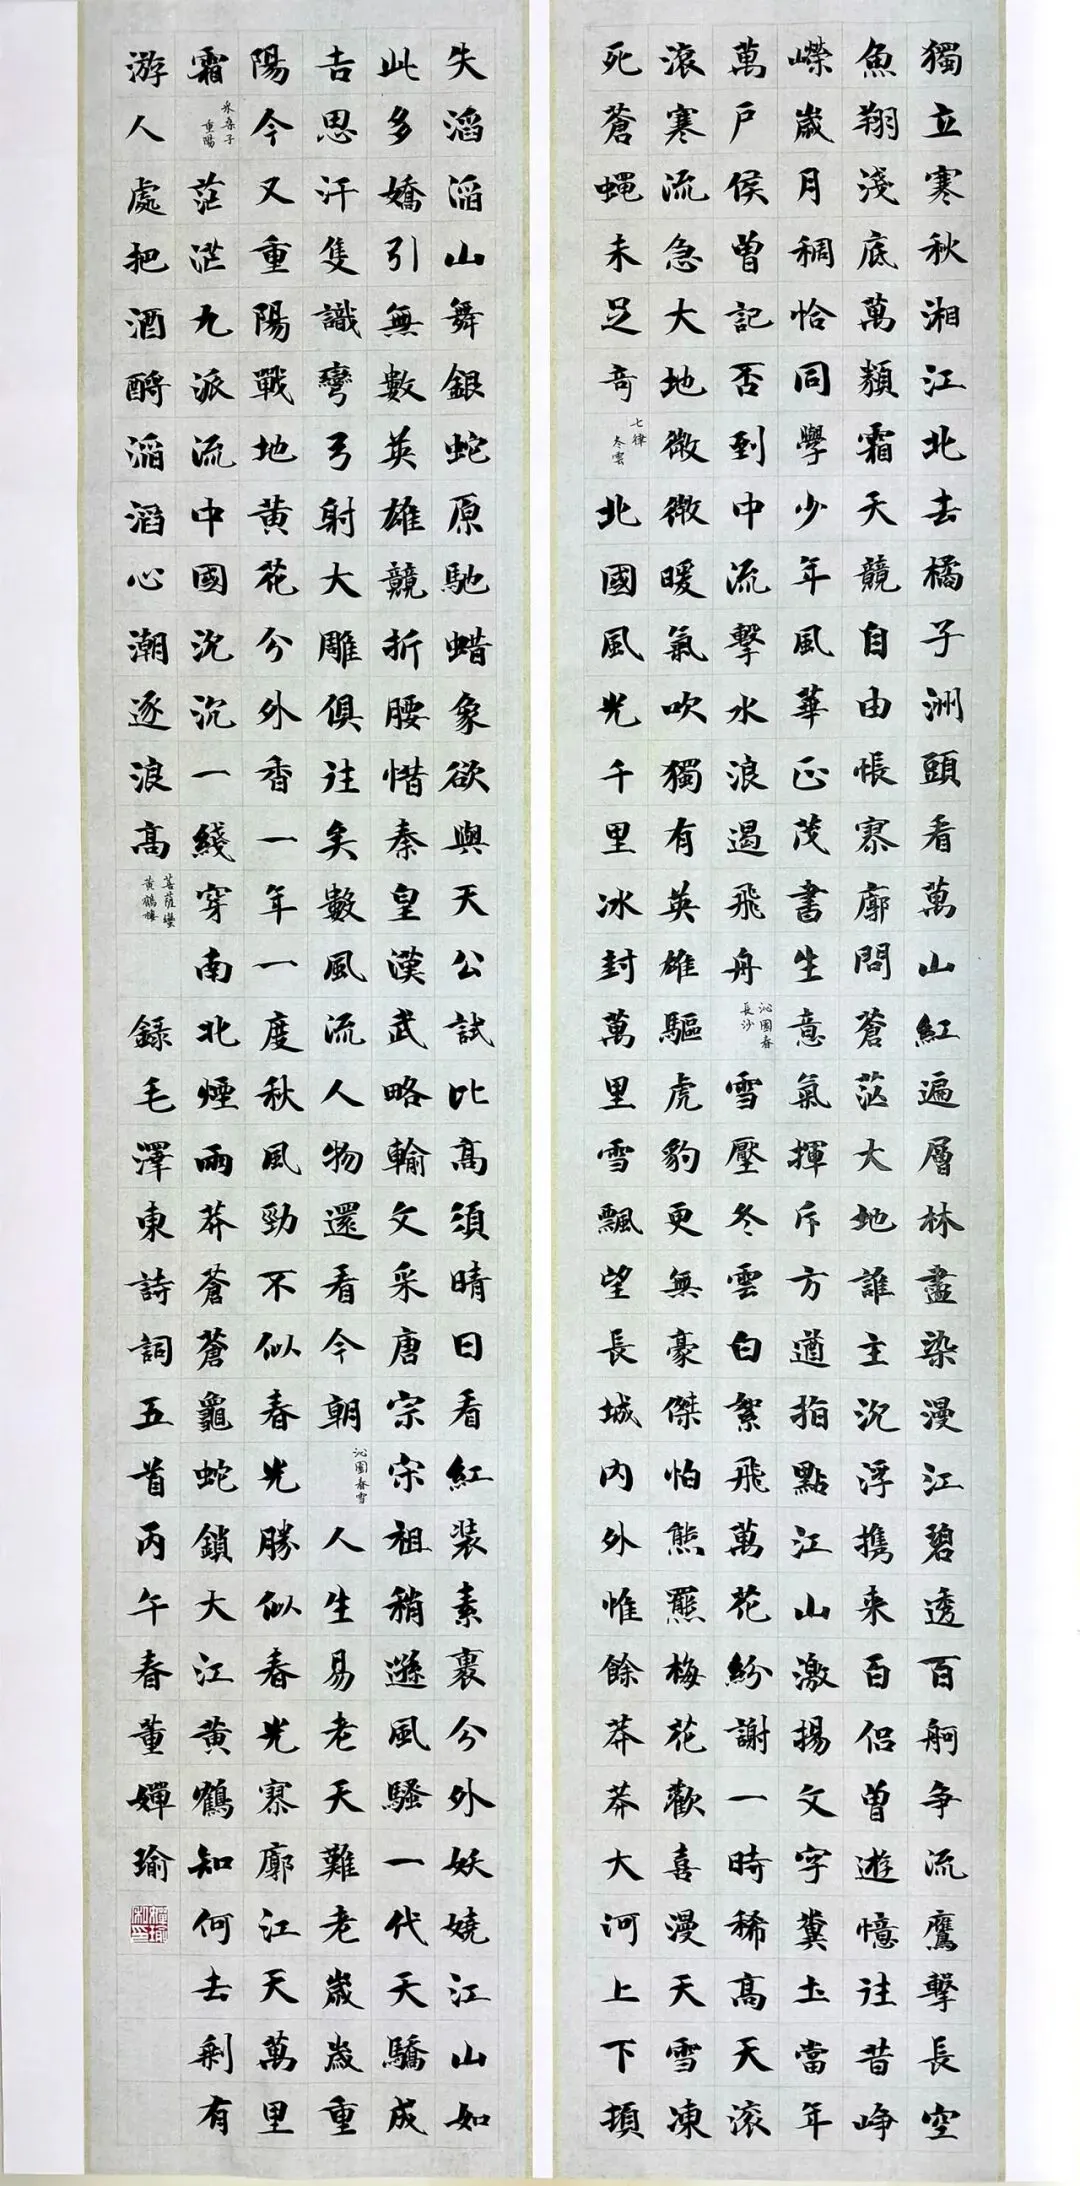 獨立寒秋湘江北去橘子洲頭看萬山紅遍層林盡染漫江碧透百舸争流鷹擊長空
魚翔淺底萬類霜天競自由悵寥廓問蒼茫大地誰主沉浮携来百侣曾遊憶往昔崢
嶸歲月稠恰同學少年風華正茂書生意氣揮斥方遒指點江山激揚文字糞土當年
萬户侯曾記否到中流擊水浪遏飛舟
沁園春
長沙
雪壓冬雲白絮飛萬花紛謝一時稀高天滚
滚寒流急大地微微暖氣吹獨有英雄驅虎豹更無豪傑怕熊羆梅花歡喜漫天雪凍
死蒼蠅未足奇
七律
冬雲
北國風光千里冰封萬里雪飄望長城内外惟餘莽莽大河上下頓
失滔滔山舞銀蛇原馳蜡象欲與天公試比高須晴日看紅装素裹分外妖嬈江山如
此多嬌引無數英雄競折腰惜秦皇漢武略輸文采唐宗宋祖稍遜風騷一代天驕成
吉思汗隻識彎弓射大雕俱往矣數風流人物還看今朝
沁園春雪
人生易老天難老歲歲重
陽今又重陽戰地黄花分外香一年一度秋風勁不似春光勝似春光寥廓江天萬里
霜
采桑子
重陽
茫茫九派流中國沉沉一綫穿南北煙雨莽蒼蒼龜蛇鎖大江黄鶴知何去剩有
游人處把酒酹滔滔心潮逐浪高
菩薩蠻
黄鶴樓
録毛澤東詩詞五首丙午春董嬋瑜